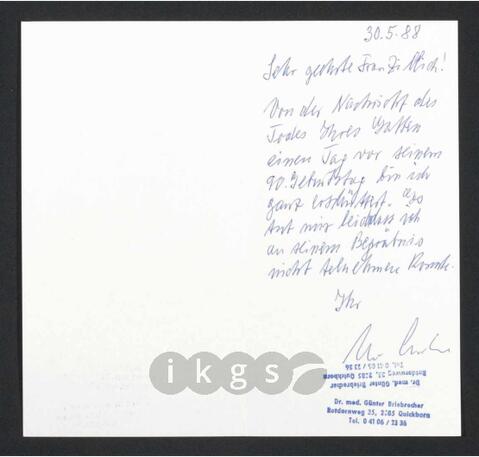 30.5.88
Sehr geehrte Frau Zillich!
Von der Nachricht des
Todes Ihres Gatten
einen Tag vor seinem
90. Geburtstag bin ich
ganz erschüttert. Es
tut mir leid dass ich
an seinem Begräbnis
nicht teilnehmen konnte.
Ihr
ikgs
Dr. med. Günter Briebrecher
Rotdornweg 35, 2085 Quickborn
Tel. 0 41 06 / 23 36
Dr. med. Günter Briebrecher
Rotdornweg 35, 2085 Quickborn
Tel. 0 41 06 / 23 36